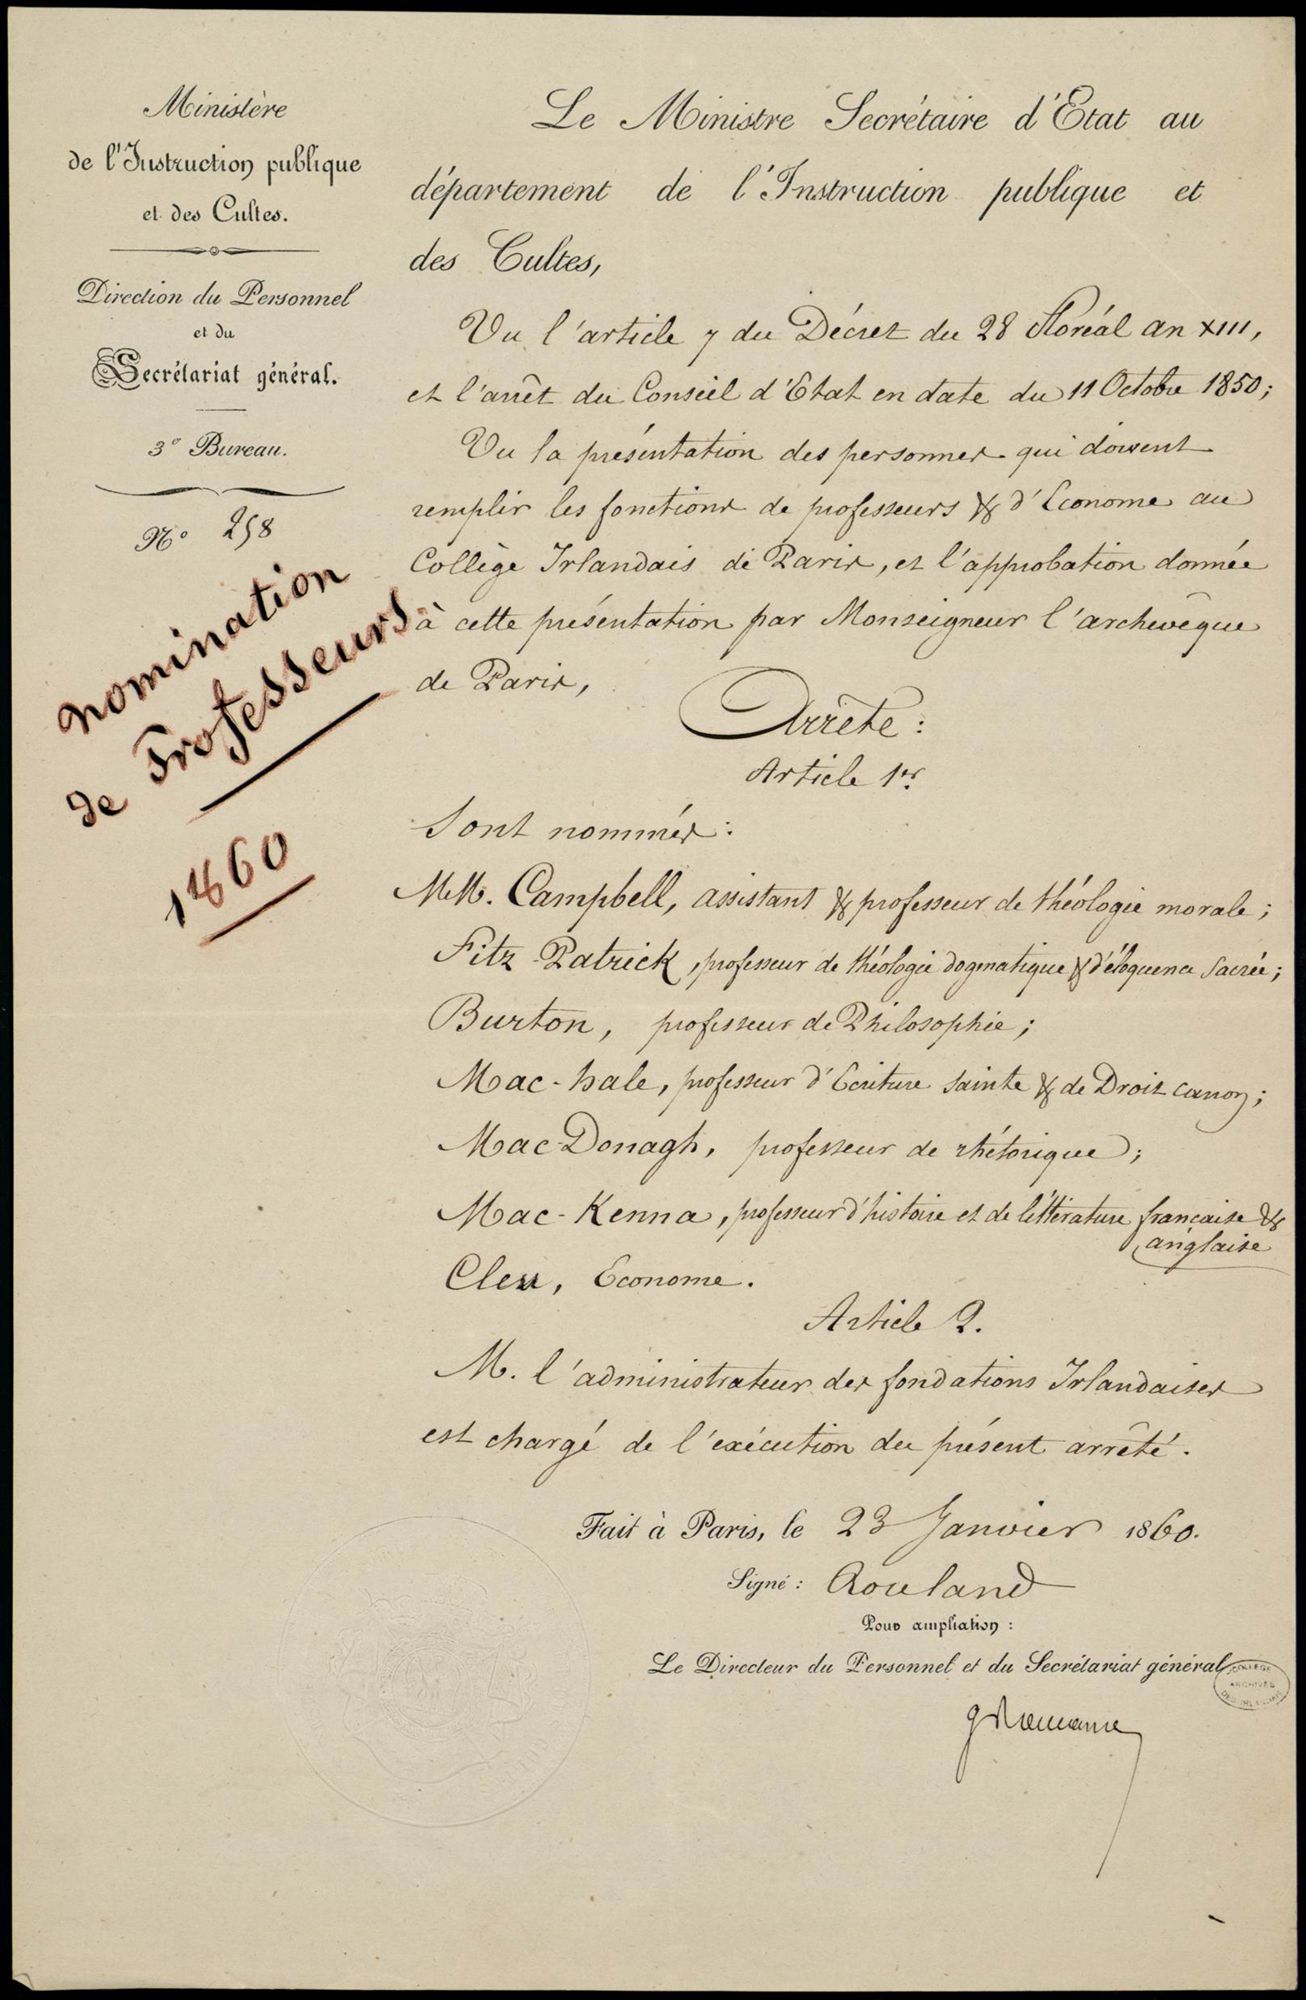 Ministère
de l'Instruction publique
et des Cultes.
Direction du Personnel
et du
Secrétariat général.
3e Bureau.
No 258
nomination
de Professeurs
1860
Le Ministre Secrétaire d'Etat au
département de l'Instruction publique et
des Cultes,
Vu l'article 7 du Décret du 28 floréal an XIII,
et l'arrêt du Conseil d'Etat en date du 11 Octobre 1850;
Vu la présentation des personnes qui doivent
remplir les fonctions de professeurs & d'Econome au
Collège Irlandais de Paris, et l'approbation donnée
à cette présentation par Monseigneur l'archevêque
de Paris,
Arrête :
Article 1er.
Sont nommés :
MM. Campbell, assistant & professeur de théologie morale ;
Fitz-Patrick, professeur de théologie dogmatique & d'éloquence Sacrée ;
Burton, professeur de Philosophie ;
Mac-hale, professeur d'Ecriture Sainte & de Droit canon ;
Mac Donagh, professeur de rhétorique ;
Mac-Kenna, professeur d'histoire et de littérature française &
anglaise
Econome.
Article 2.
M. l'administrateur des fondations Irlandaises
est chargé de l'exécution du présent arrêté.
Fait à Paris, le 23 Janvier 1860.
Signé : Rouland
Pour ampliation :
Le Directeur du Personnel et du Secrétariat général
COLLEGE
ARCHIVES
DES IRLANDAIS